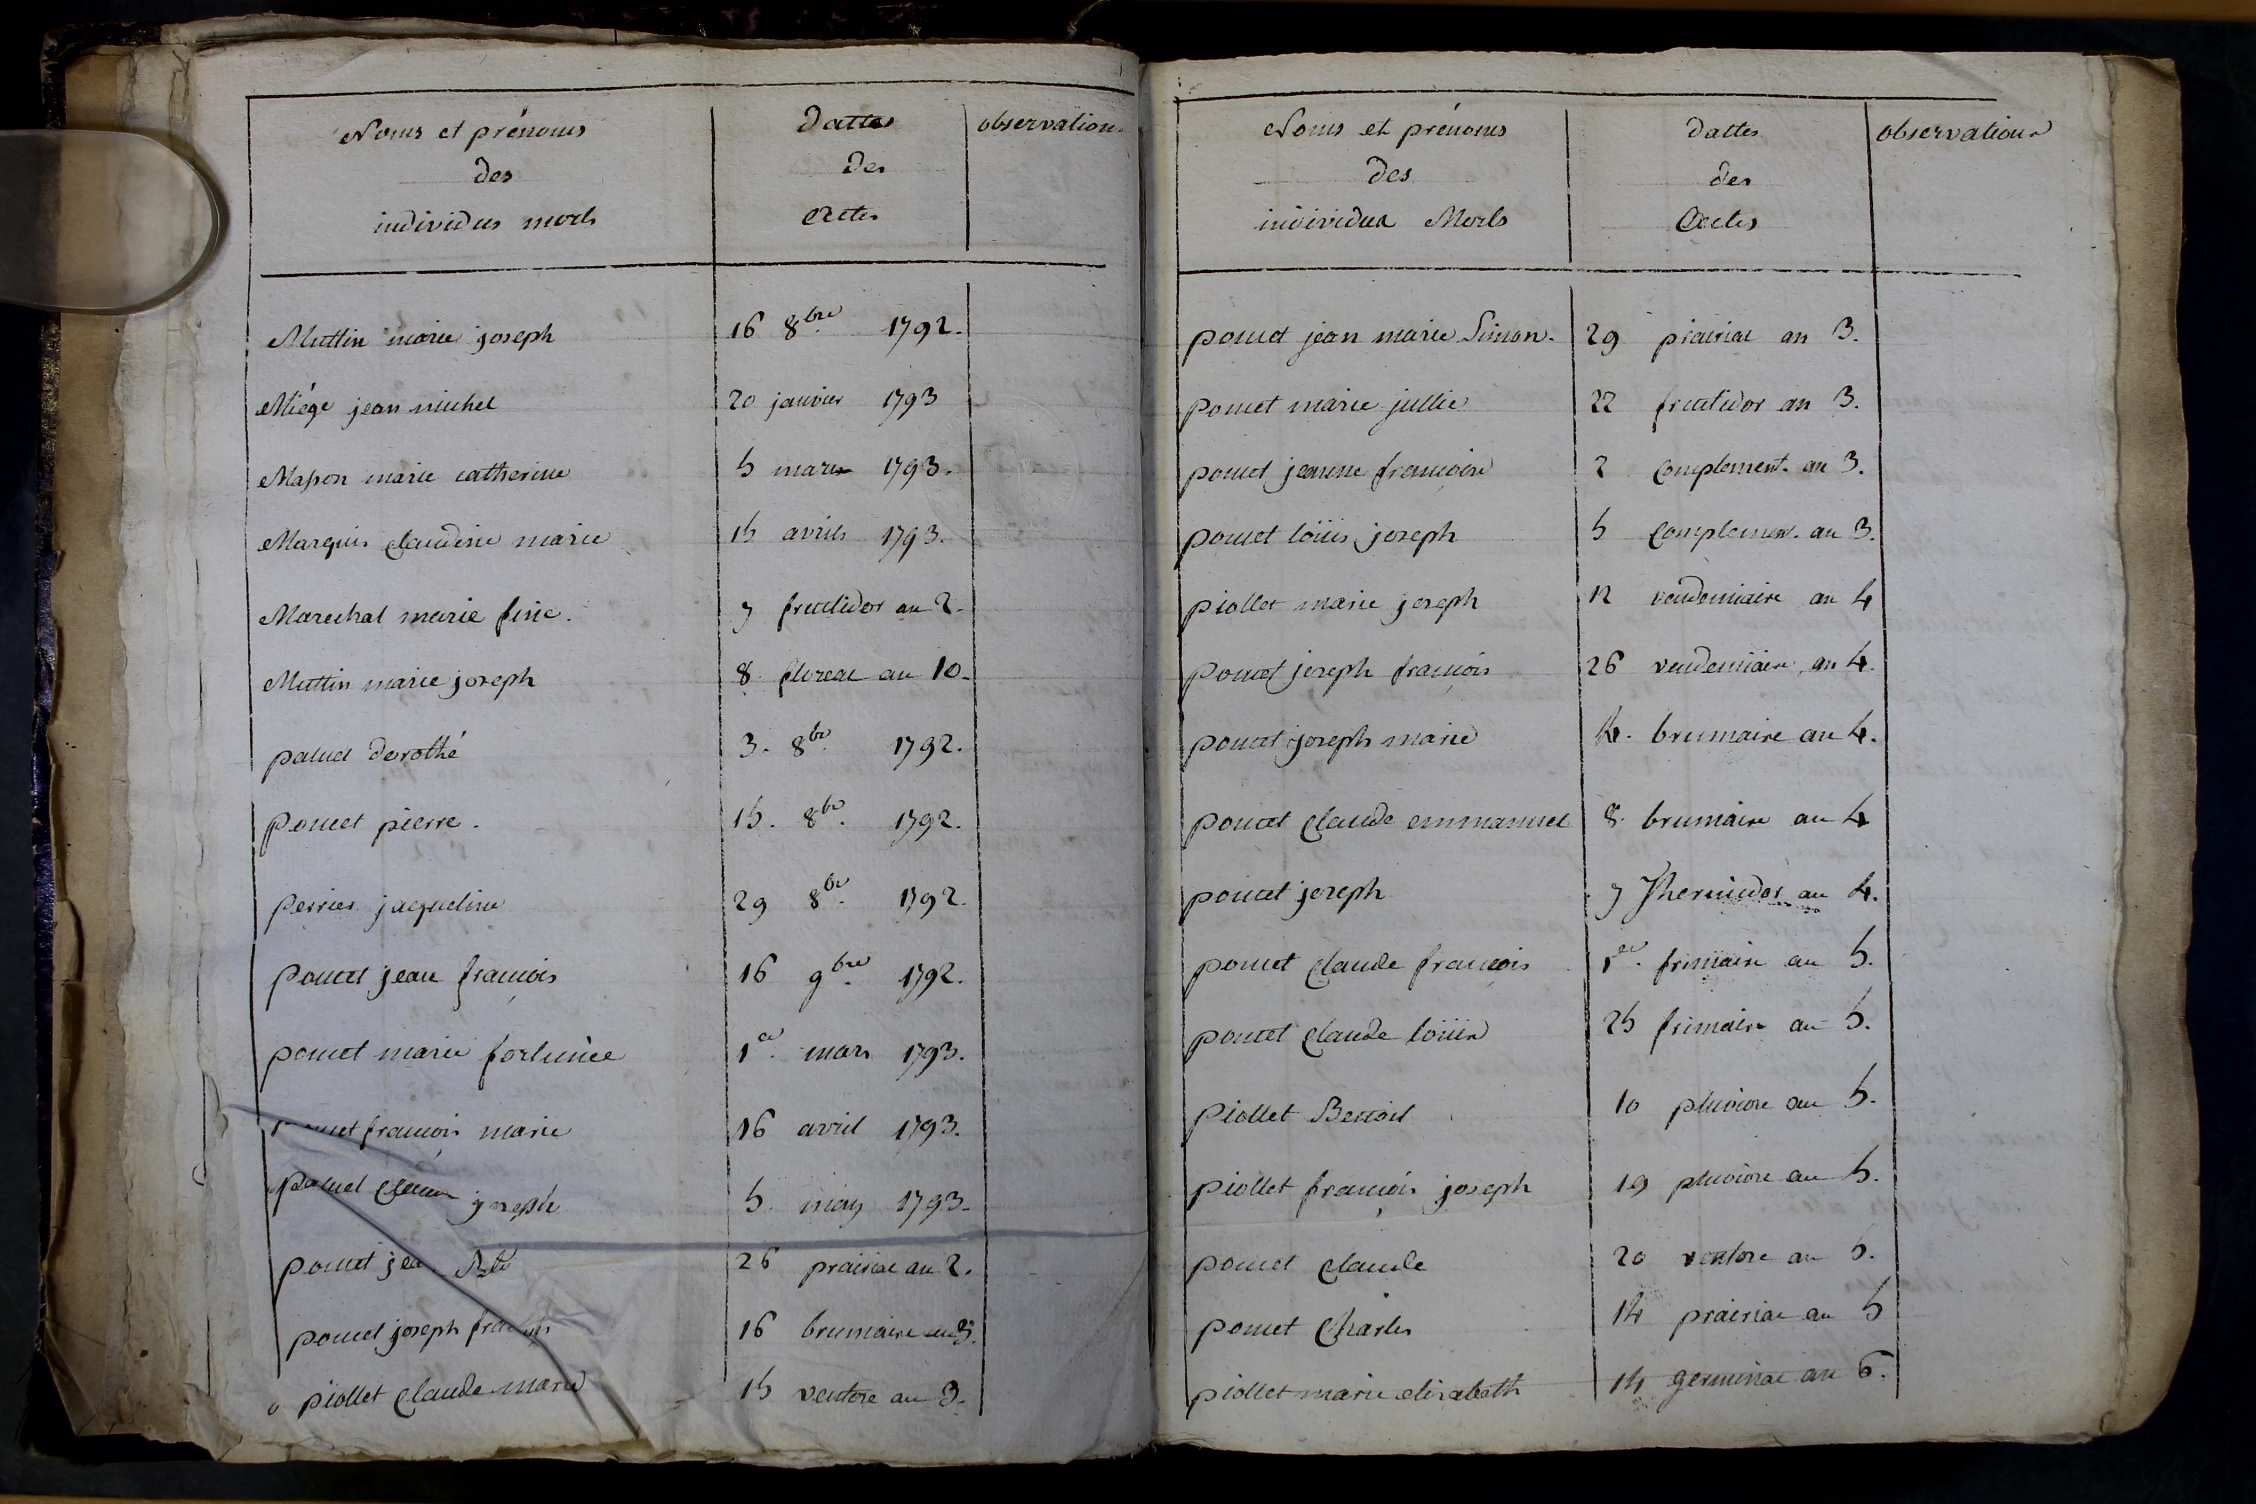 Noms et prénoms
des
individus morts
Dattes
des
Actes
observations
Muttin marie joseph 16 8bre 1792.
Miége jean michel 20 janvier 1793
Masson marie catherine 5 mars 1793.
Marquis claudine marie 15 avrils 1793.
Marechal marie fine. 7 fructidor an 2.
Muttin marie joseph 8 floreal an 10.
paluel dorothé 3. 8bre 1792.
Poncet pierre. 15. 8bre. 1792.
perrier jacqueline 29 8bre. 1792.
Poncet jean françois 16 9bre. 1792.
poncet marie fortunée 1er. mars 1793.
françois marie 16 avril 1793.
joseph 5. may 1793.
poncet 26 prairial an 2.
poncet joseph françois 16 brumaire an 3.
piollet claude marie 15 ventose an 3.
Noms et prénoms
des
individus Morts
dattes
des
Actes
observations
poncet jean marie Simon. 29 prairial an 3.
poncet marie jullie 22 fructidor an 3.
poncet jeanne françoise 2 complement. an 3.
poncet loüis joseph 5 complement. an 3.
piollet marie joseph 12 vendemiaire an 4
poncet joseph françois 26 vendemiaire an 4.
poncet joseph marie brumaire an 4.
poncet claude emmanuel 8. brumaire an 4
poncet joseph 7 Thermidor an 4.
poncet claude françois 1er. frimaire an 5.
poncet claude loüis 25 frimaire an 5.
piollet Benoit 10 pluviose an 5.
piollet françois joseph 19 pluviose an 5.
poncet claude 20 ventose an 5.
poncet Charles 14 prairial an 5
piollet marie elizabeth 14 germinal an 6.